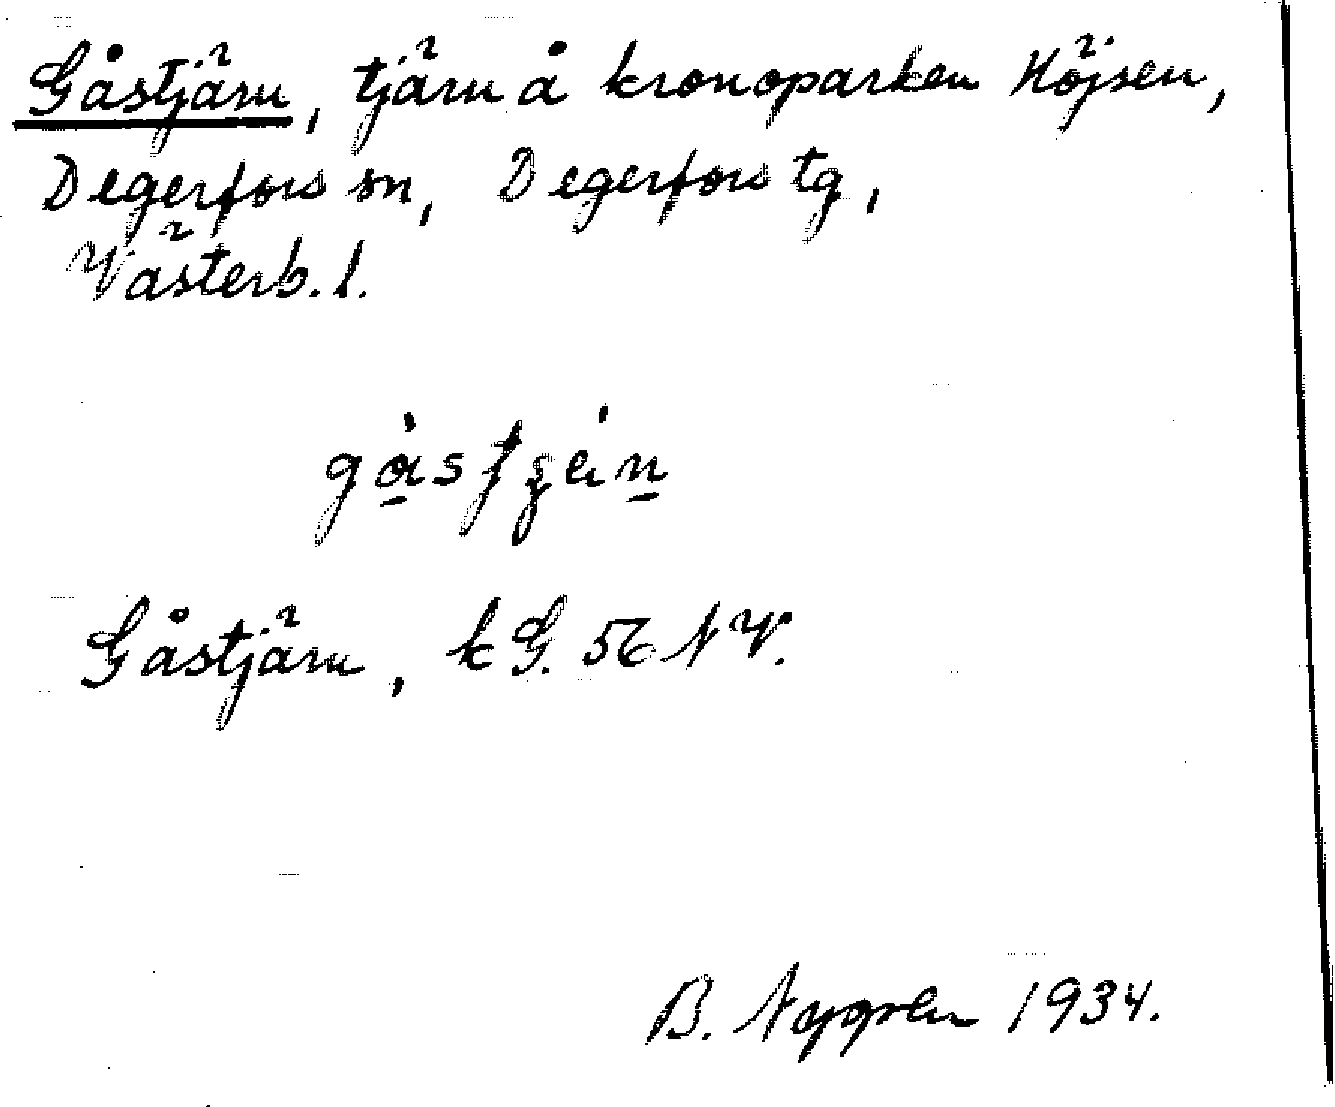 Gåstjärn, tjärn å kronoparken Höjsen,
Degerfors sn, Degerfors tg,
Västerb. l.
Gåstjärn, k G. 56 NV.
B. Nygren 1934.